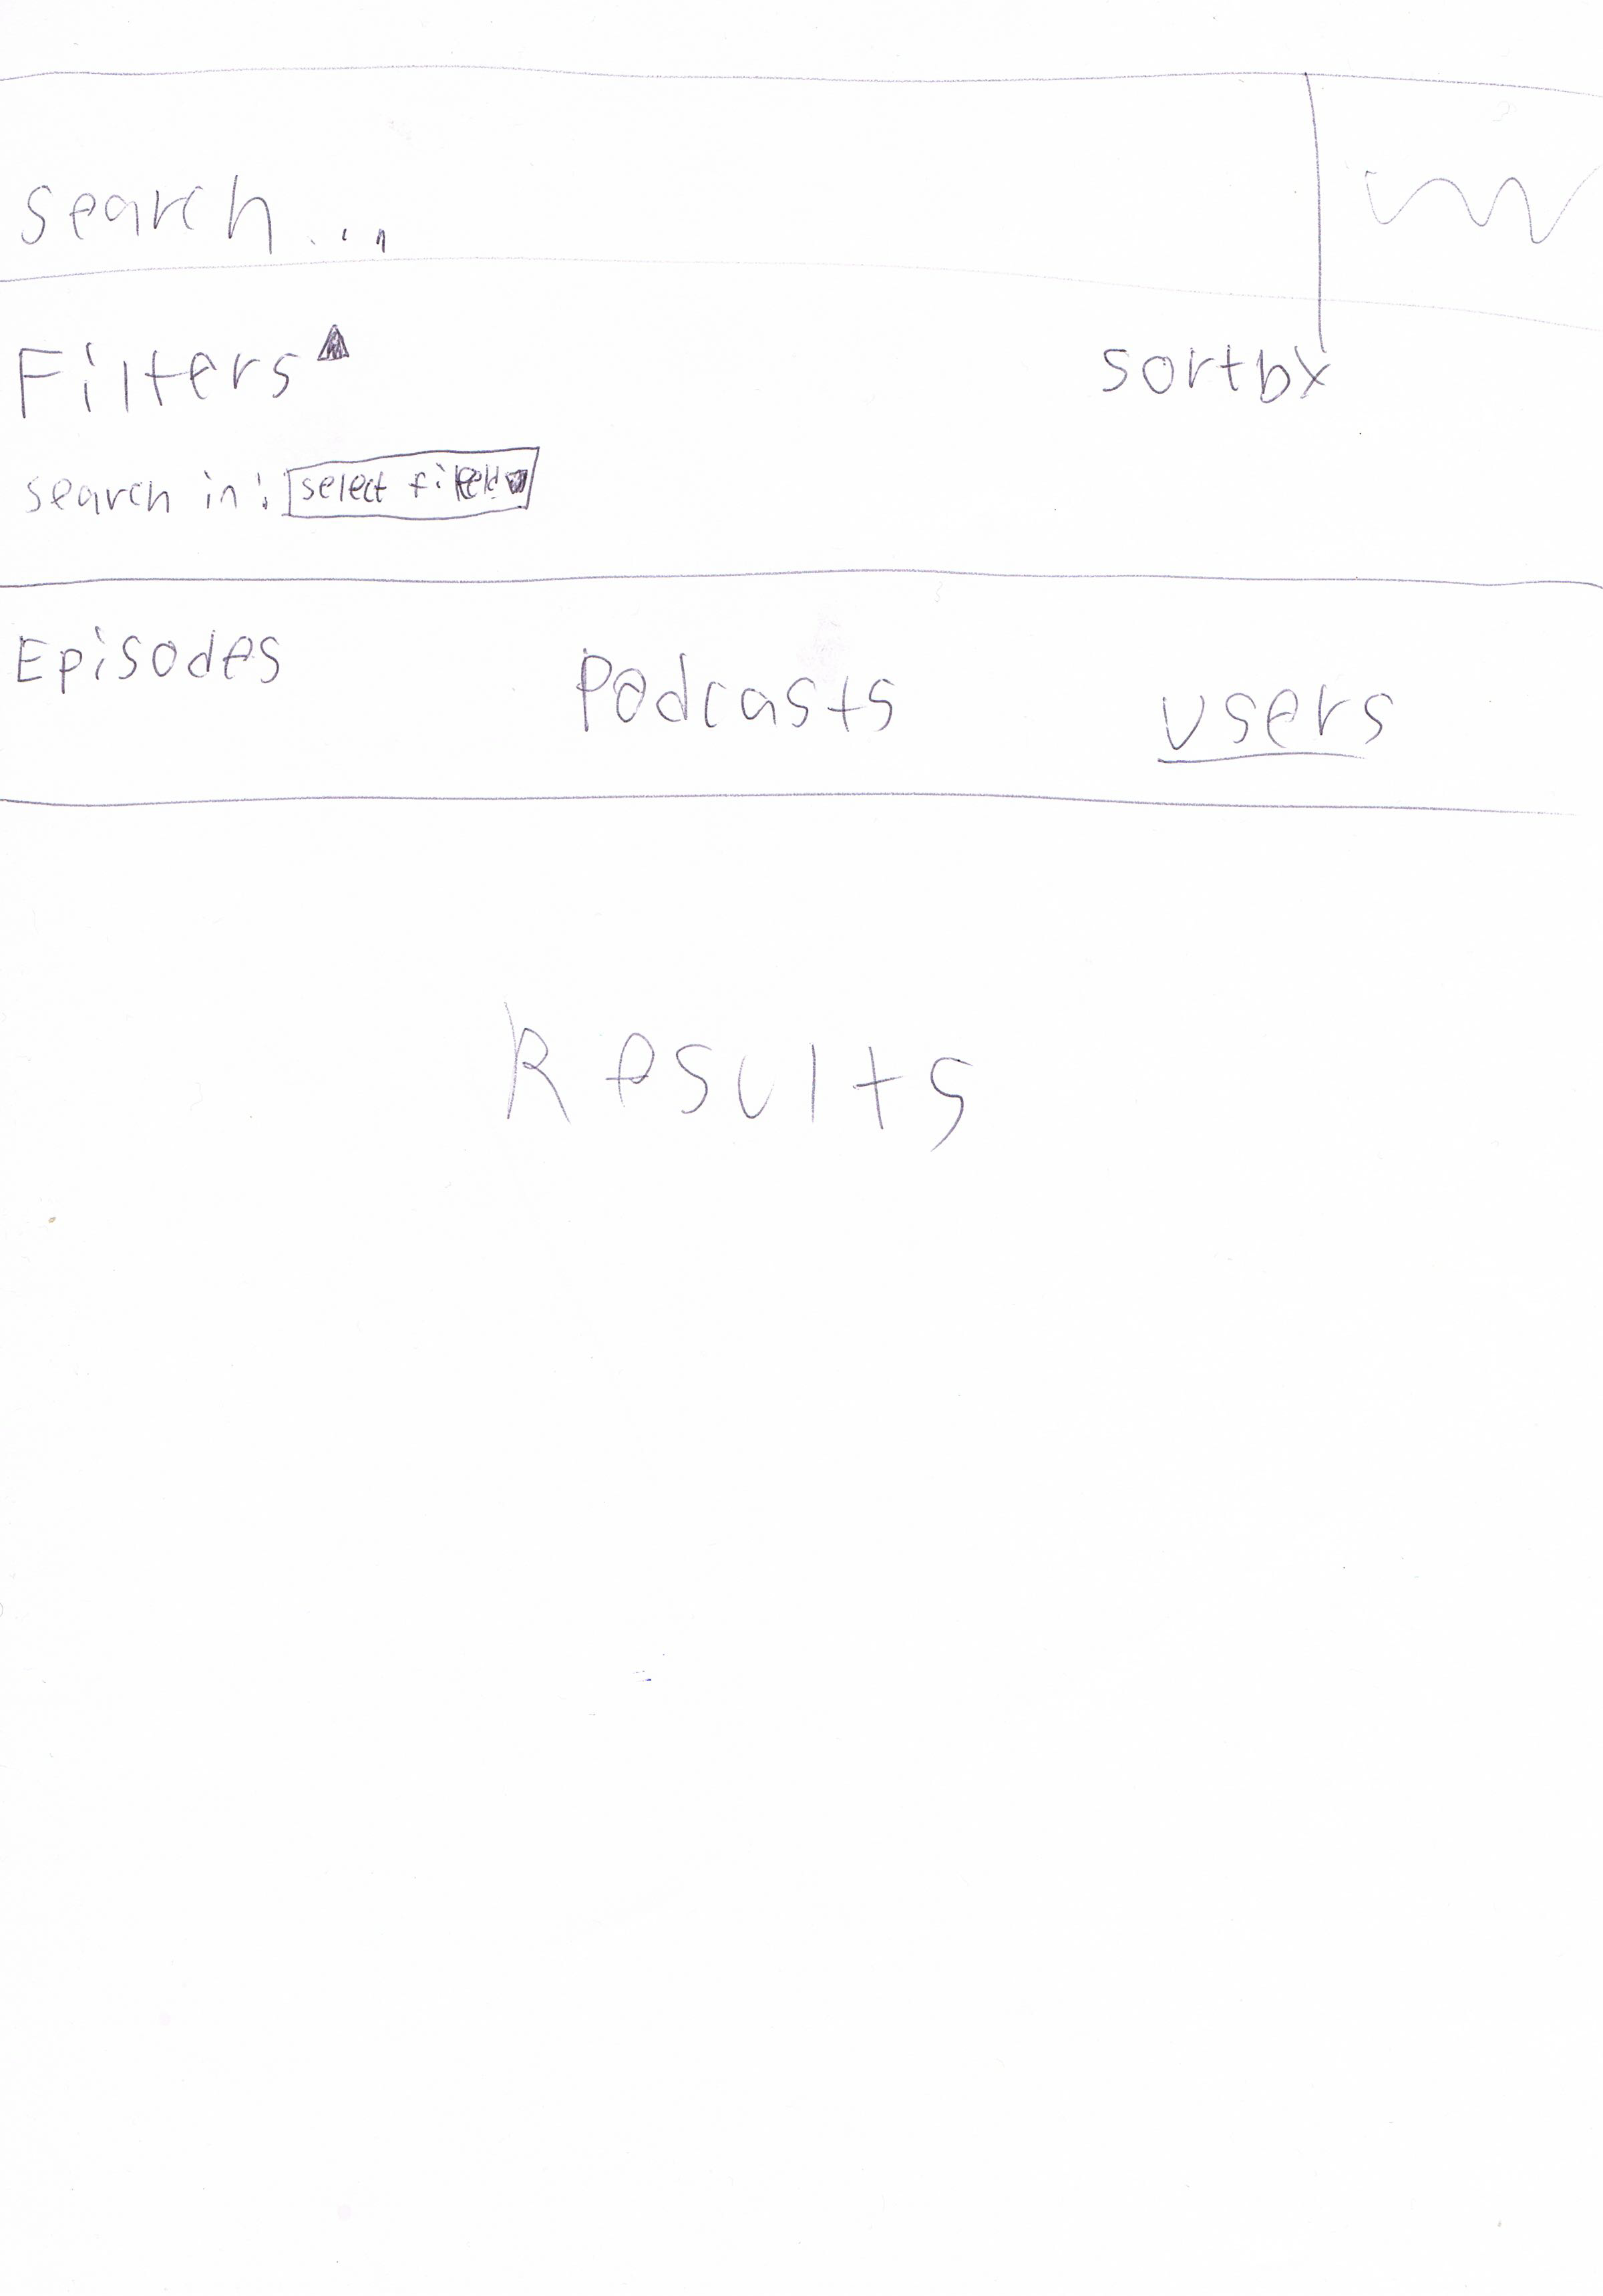 search...
Filters
sortby
search in:
select field
Episodes
Podcasts
users
Results